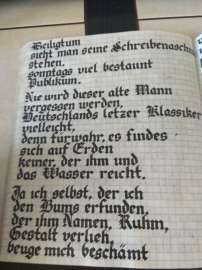 Heiligtum
sieht man seine Schreibenaschine
stehen,
sonntags viel bestaunt
Publikum.
Nie wird dieser alte Mann
vergessen werden,
Deutschlands letzer Klassiker
vielleicht,
denn fürwahr, es findes
sich auf Erden
keiner, der ihm und
das Wasser reicht.
Ja ich selbst, der ich
den Bums erfunden,
der ihm Namen, Ruhm,
Gestalt verlieh,
beuge mich beschämt